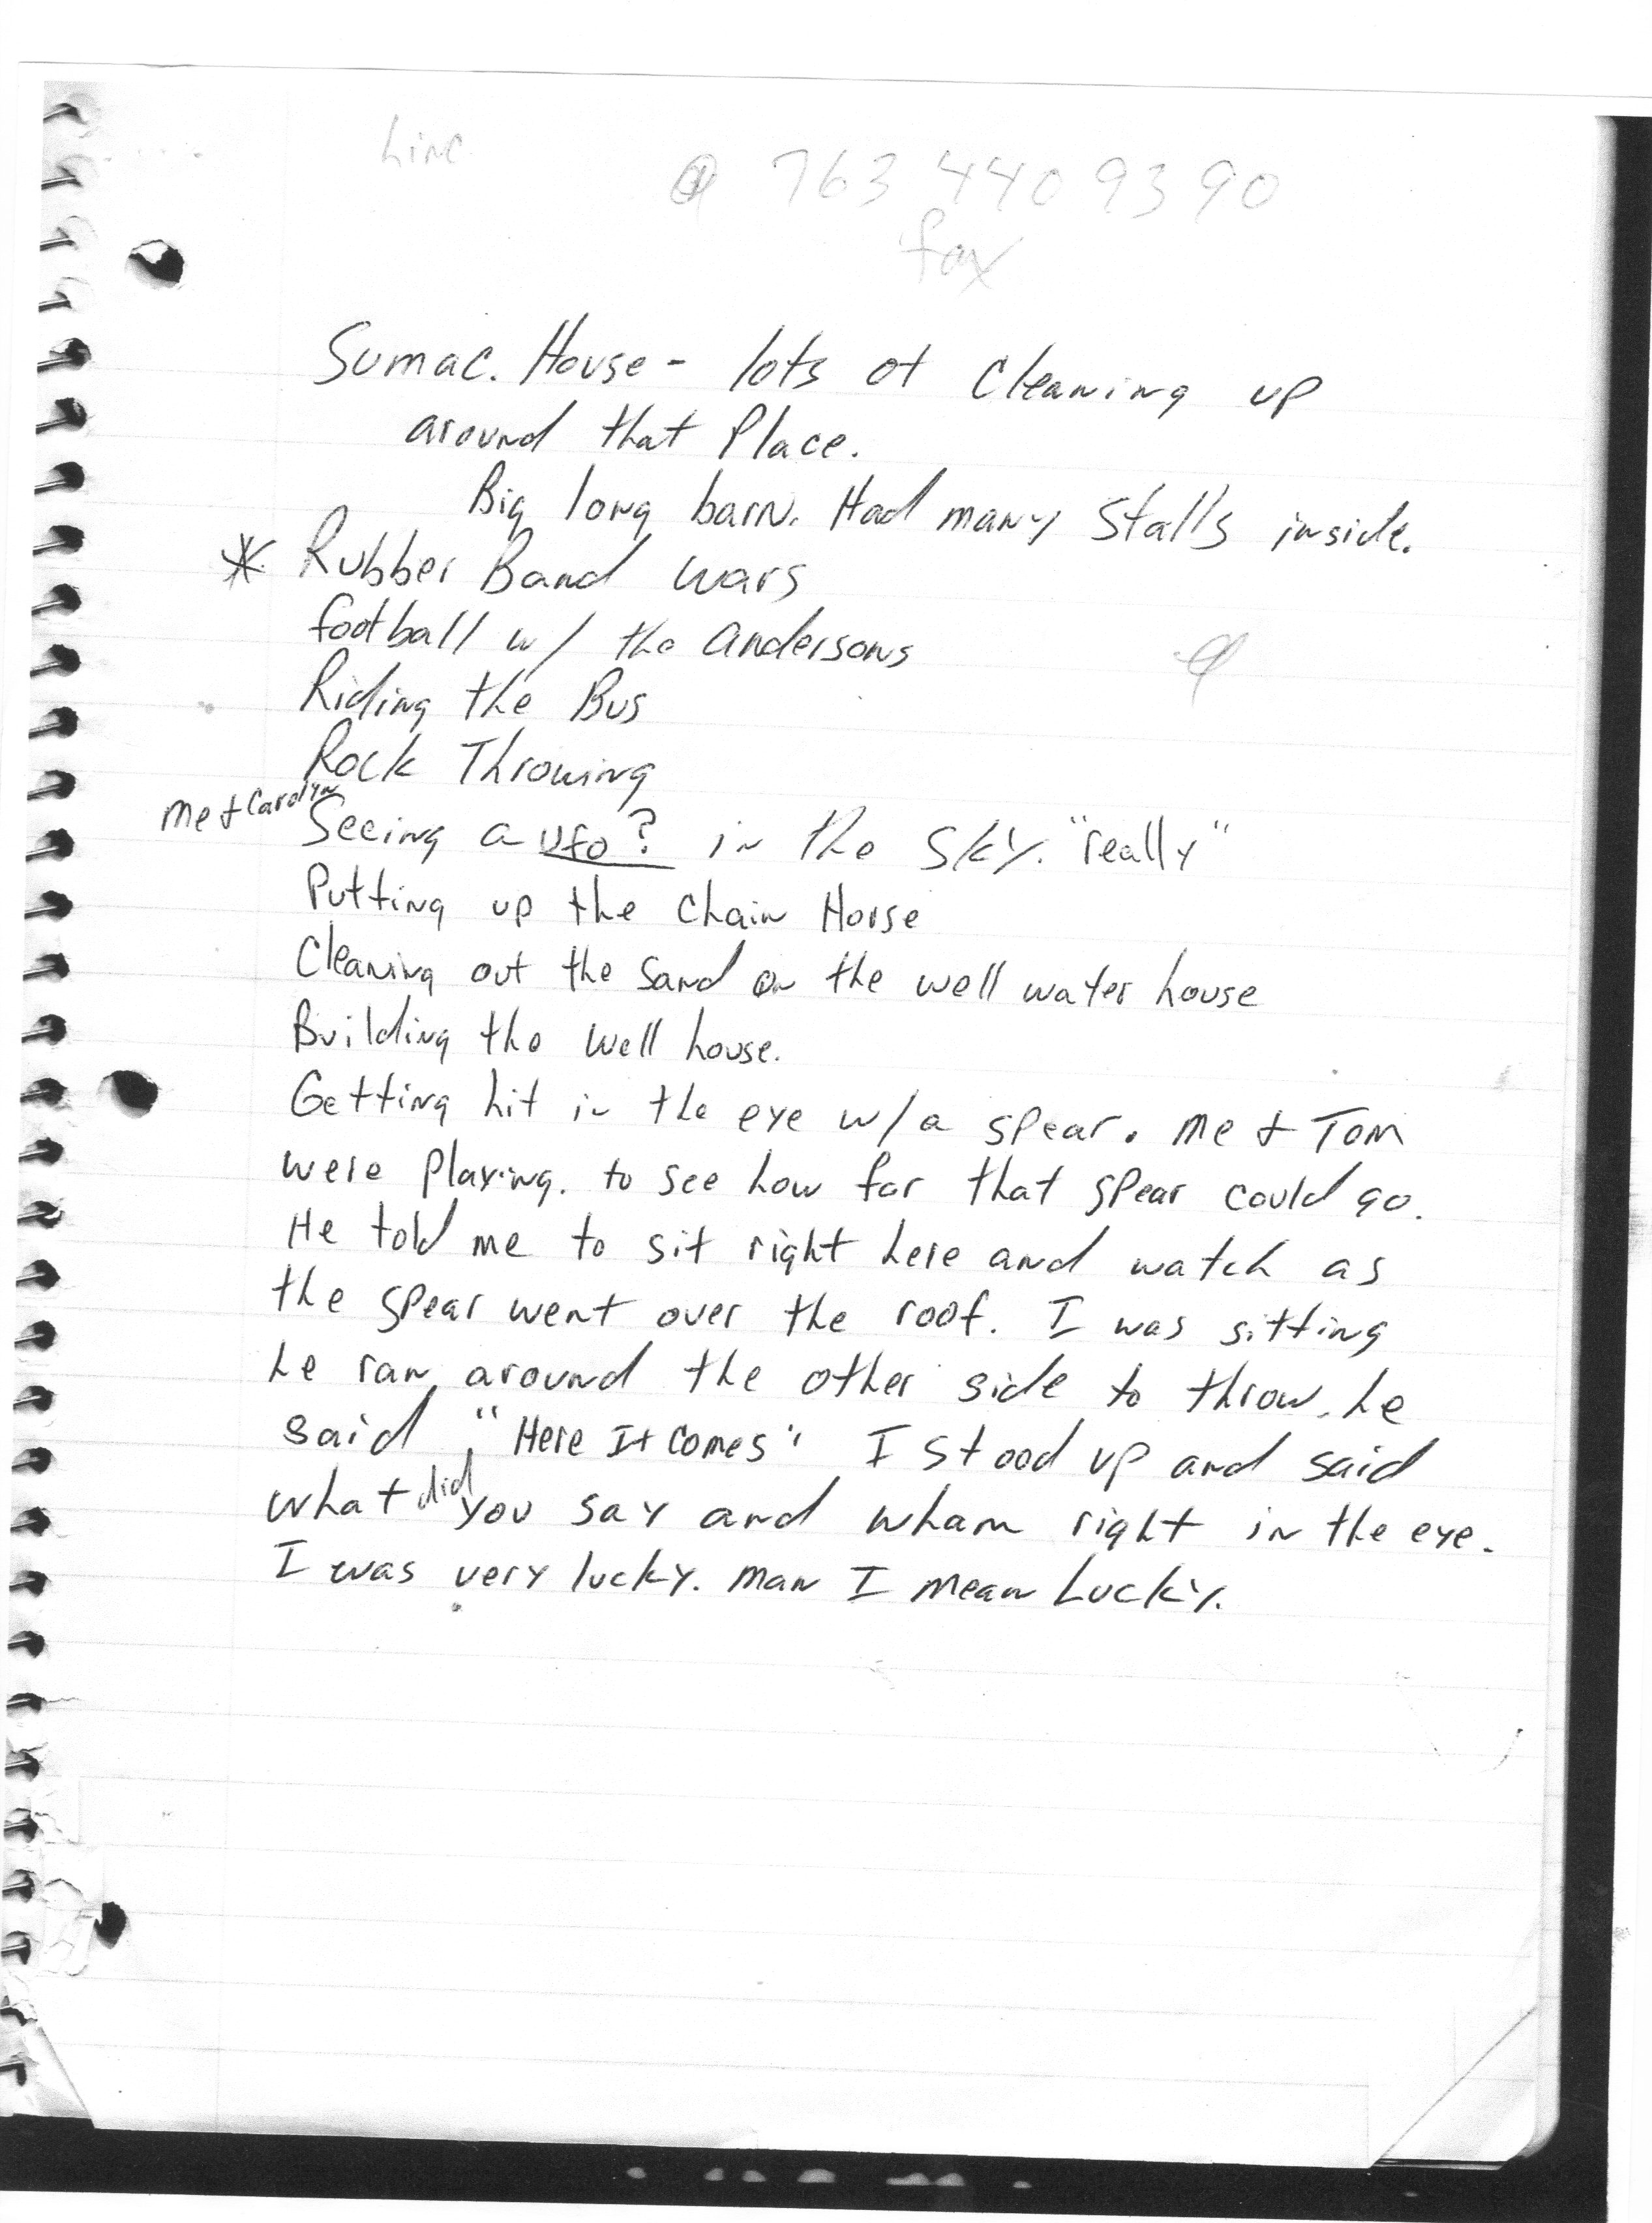 Linc
@ 763 440 9390
fax
Sumac. House - lots of Cleaning up
around that Place.
Big long barn. Had many Stalls inside.
* Rubber Band wars
football w/ the andersons
Riding the Bus
Rock Throwing
me + Carolyn
Seeing a UFO? in the sky. "really"
Putting up the Chain Horse
Cleaning out the Sand on the well water house
Building the Well house.
Getting hit in the eye w/ a spear. me + Tom
were playing. to see how far that spear could go.
He told me to sit right here and watch as
the spear went over the roof. I was sitting
he ran around the other side to throw. he
said, "Here It comes" I stood up and said
what did you say and wham right in the eye.
I was very lucky. man I mean Lucky.